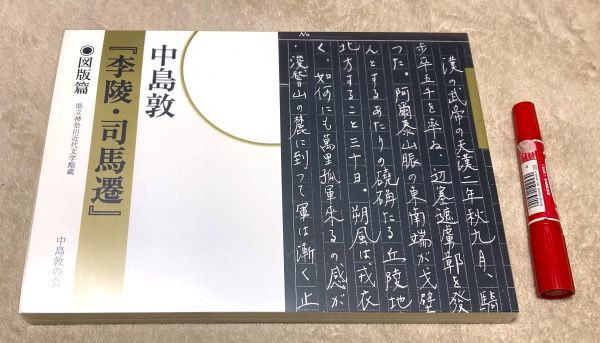 No
漢の武帝の天漢二年秋九月、騎
歩卒五千を率ゐ、辺塞遮虜鄣を発
つた。阿爾泰山脈の東南端が戈壁
んとするあたりの磽确たる丘陵地
北方すること三十日。朔風は戎衣
く、如何にも萬里孤軍来るの感が
・浚稽山の麓に到つて軍は漸く止
中島敦
『李陵・司馬遷』
◉図版篇
県立神奈川近代文学館蔵
中島敦の会